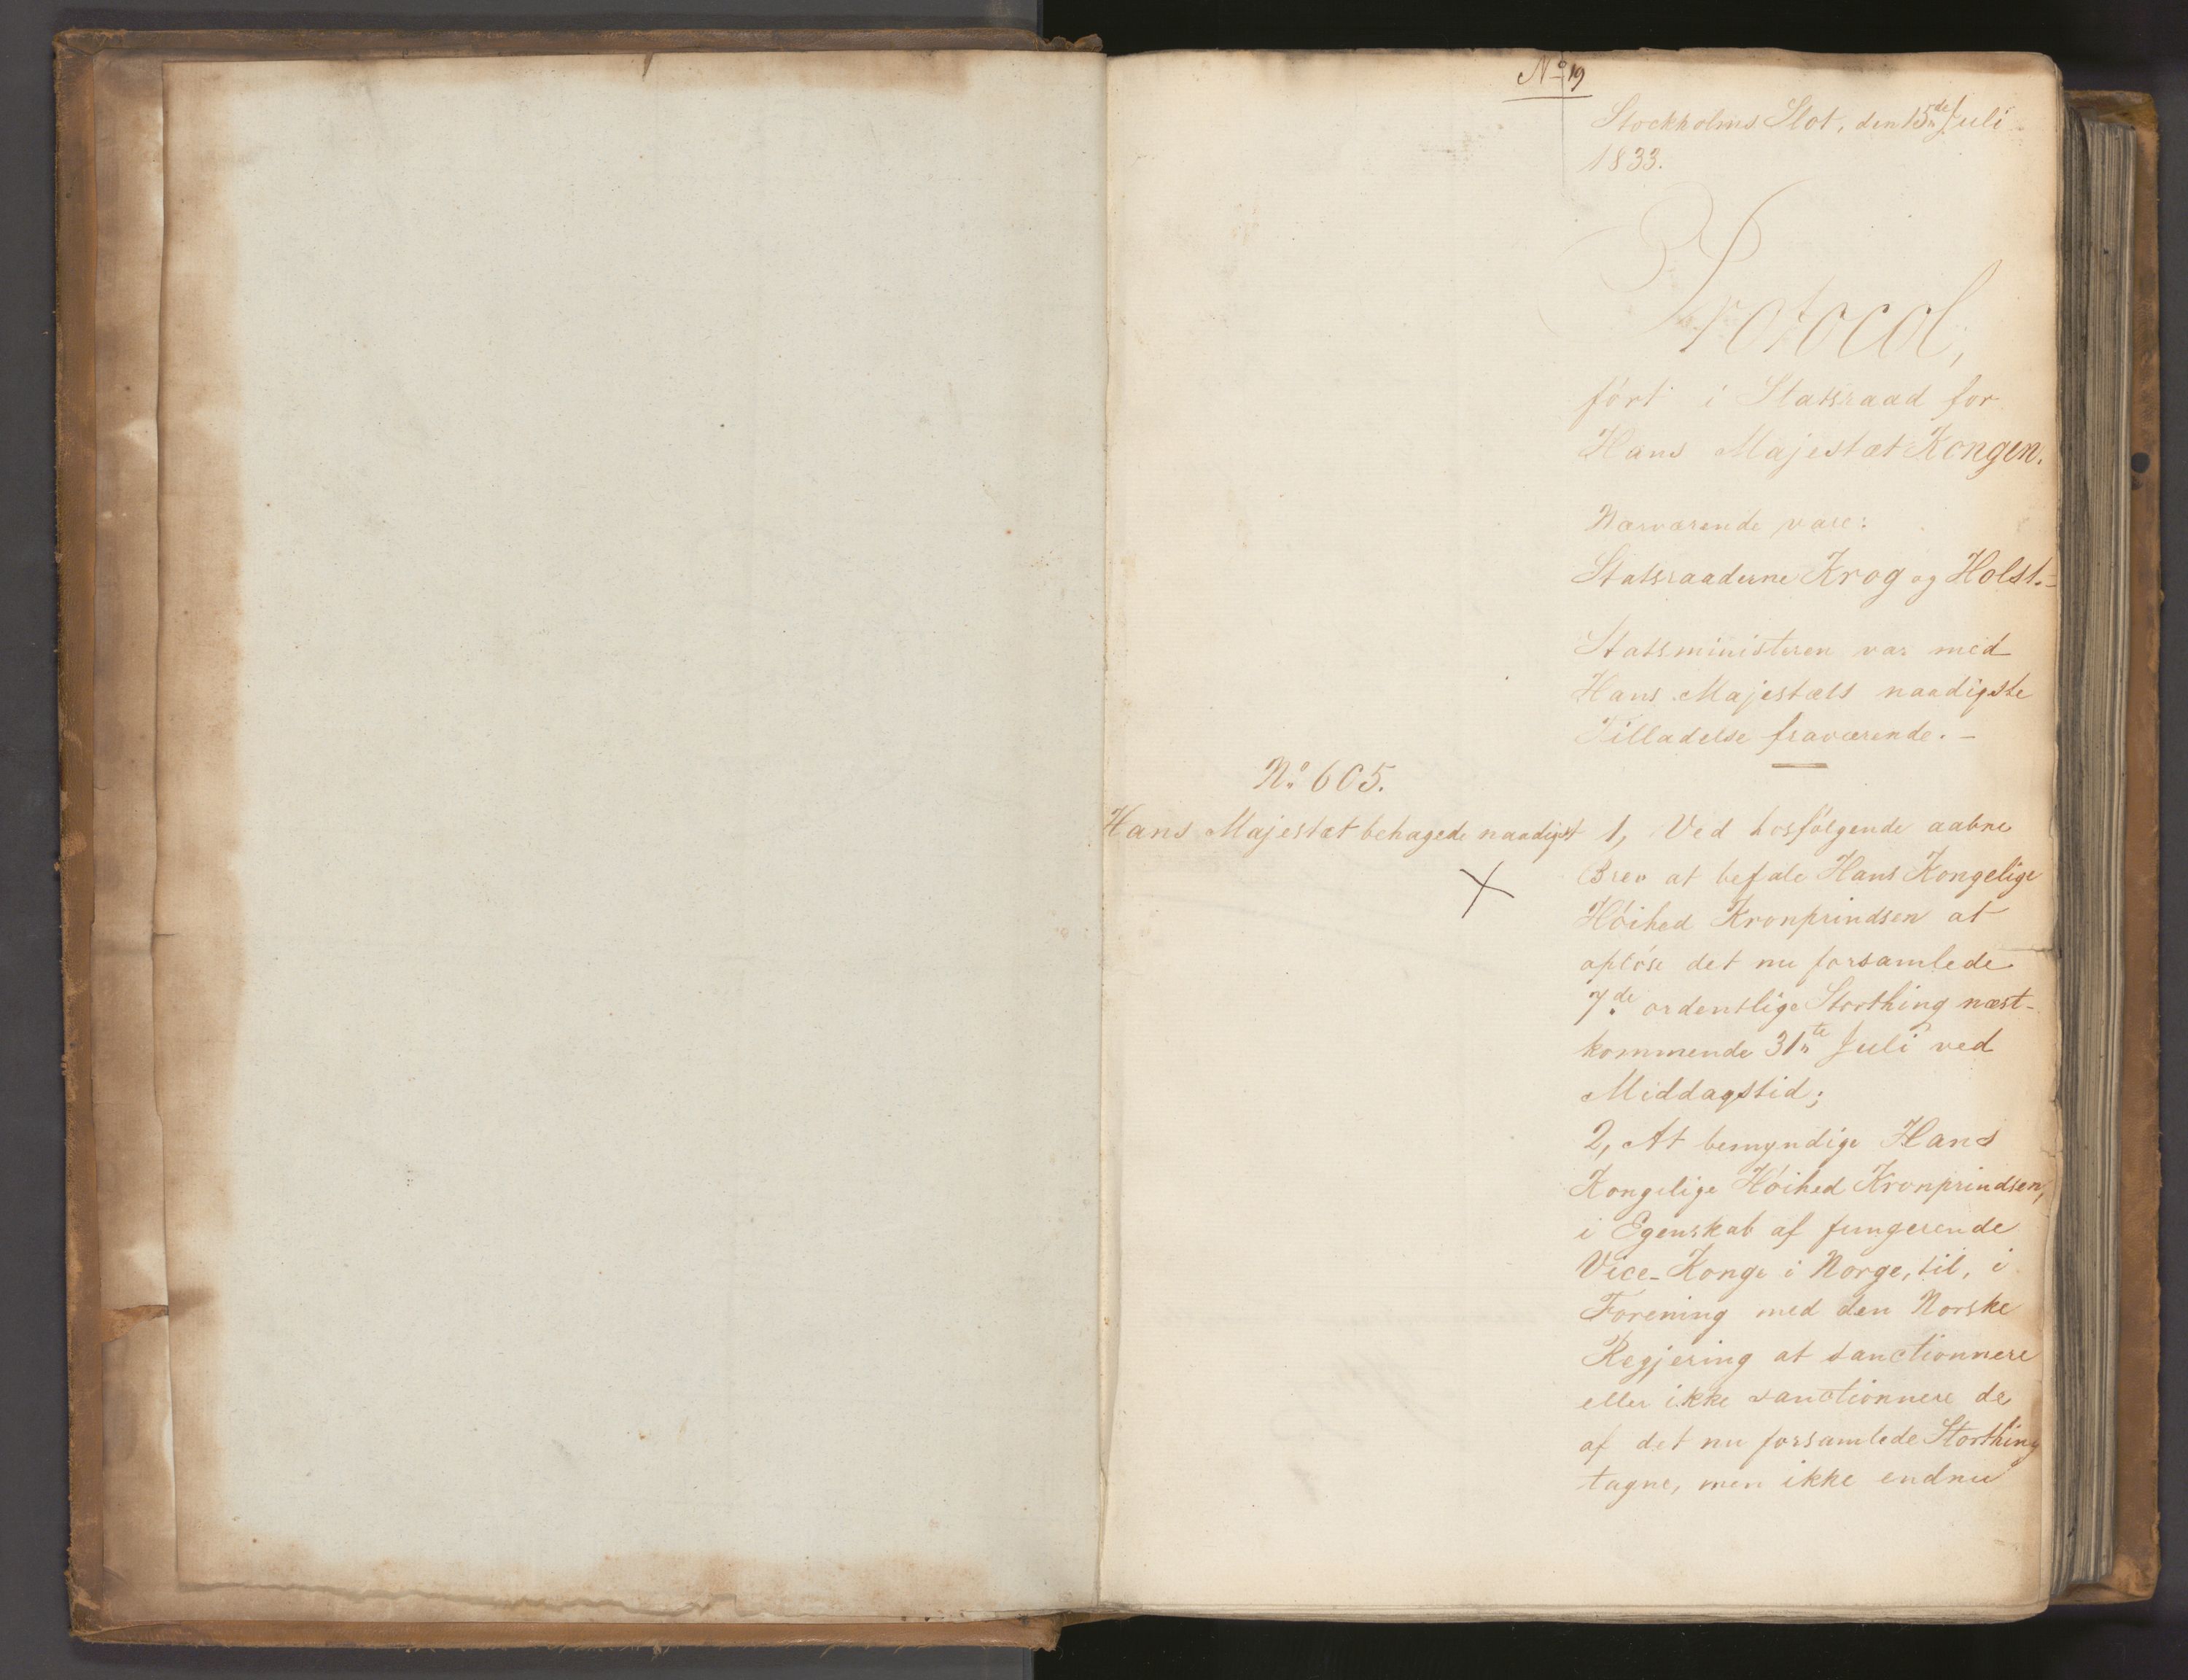 No 19
Stockholms Slot, den 15de Juli
1833.
Protocol,
ført i Statsraad for
Hans Majestæt Kongen.
Nærværende vare:
Statsraaderne Krog og Holst.-
Statsministeren var med
Hans Majestæts naadigste
Tilladelse fraværende. -
No 605.
Hans Majestæt behagede naadigst 1, Ved hosfølgende aabne
Brev at befale Hans Kongelige
Høihed Kronprindsen at
opløse det nu forsamlede
7de ordentlige Storthing næst-
kommende 31te Juli ved
Middagstid;
2, At bemyndige Hans
Kongelige Høihed Kronprindsen,
i Egenskab af fungerende
Vice-Konge i Norge, til, i
Forening med den Norske
Regjering at sanctionnere
eller ikke sanctionnere de
af det nu forsamlede Storthing
tagne, men ikke endnu